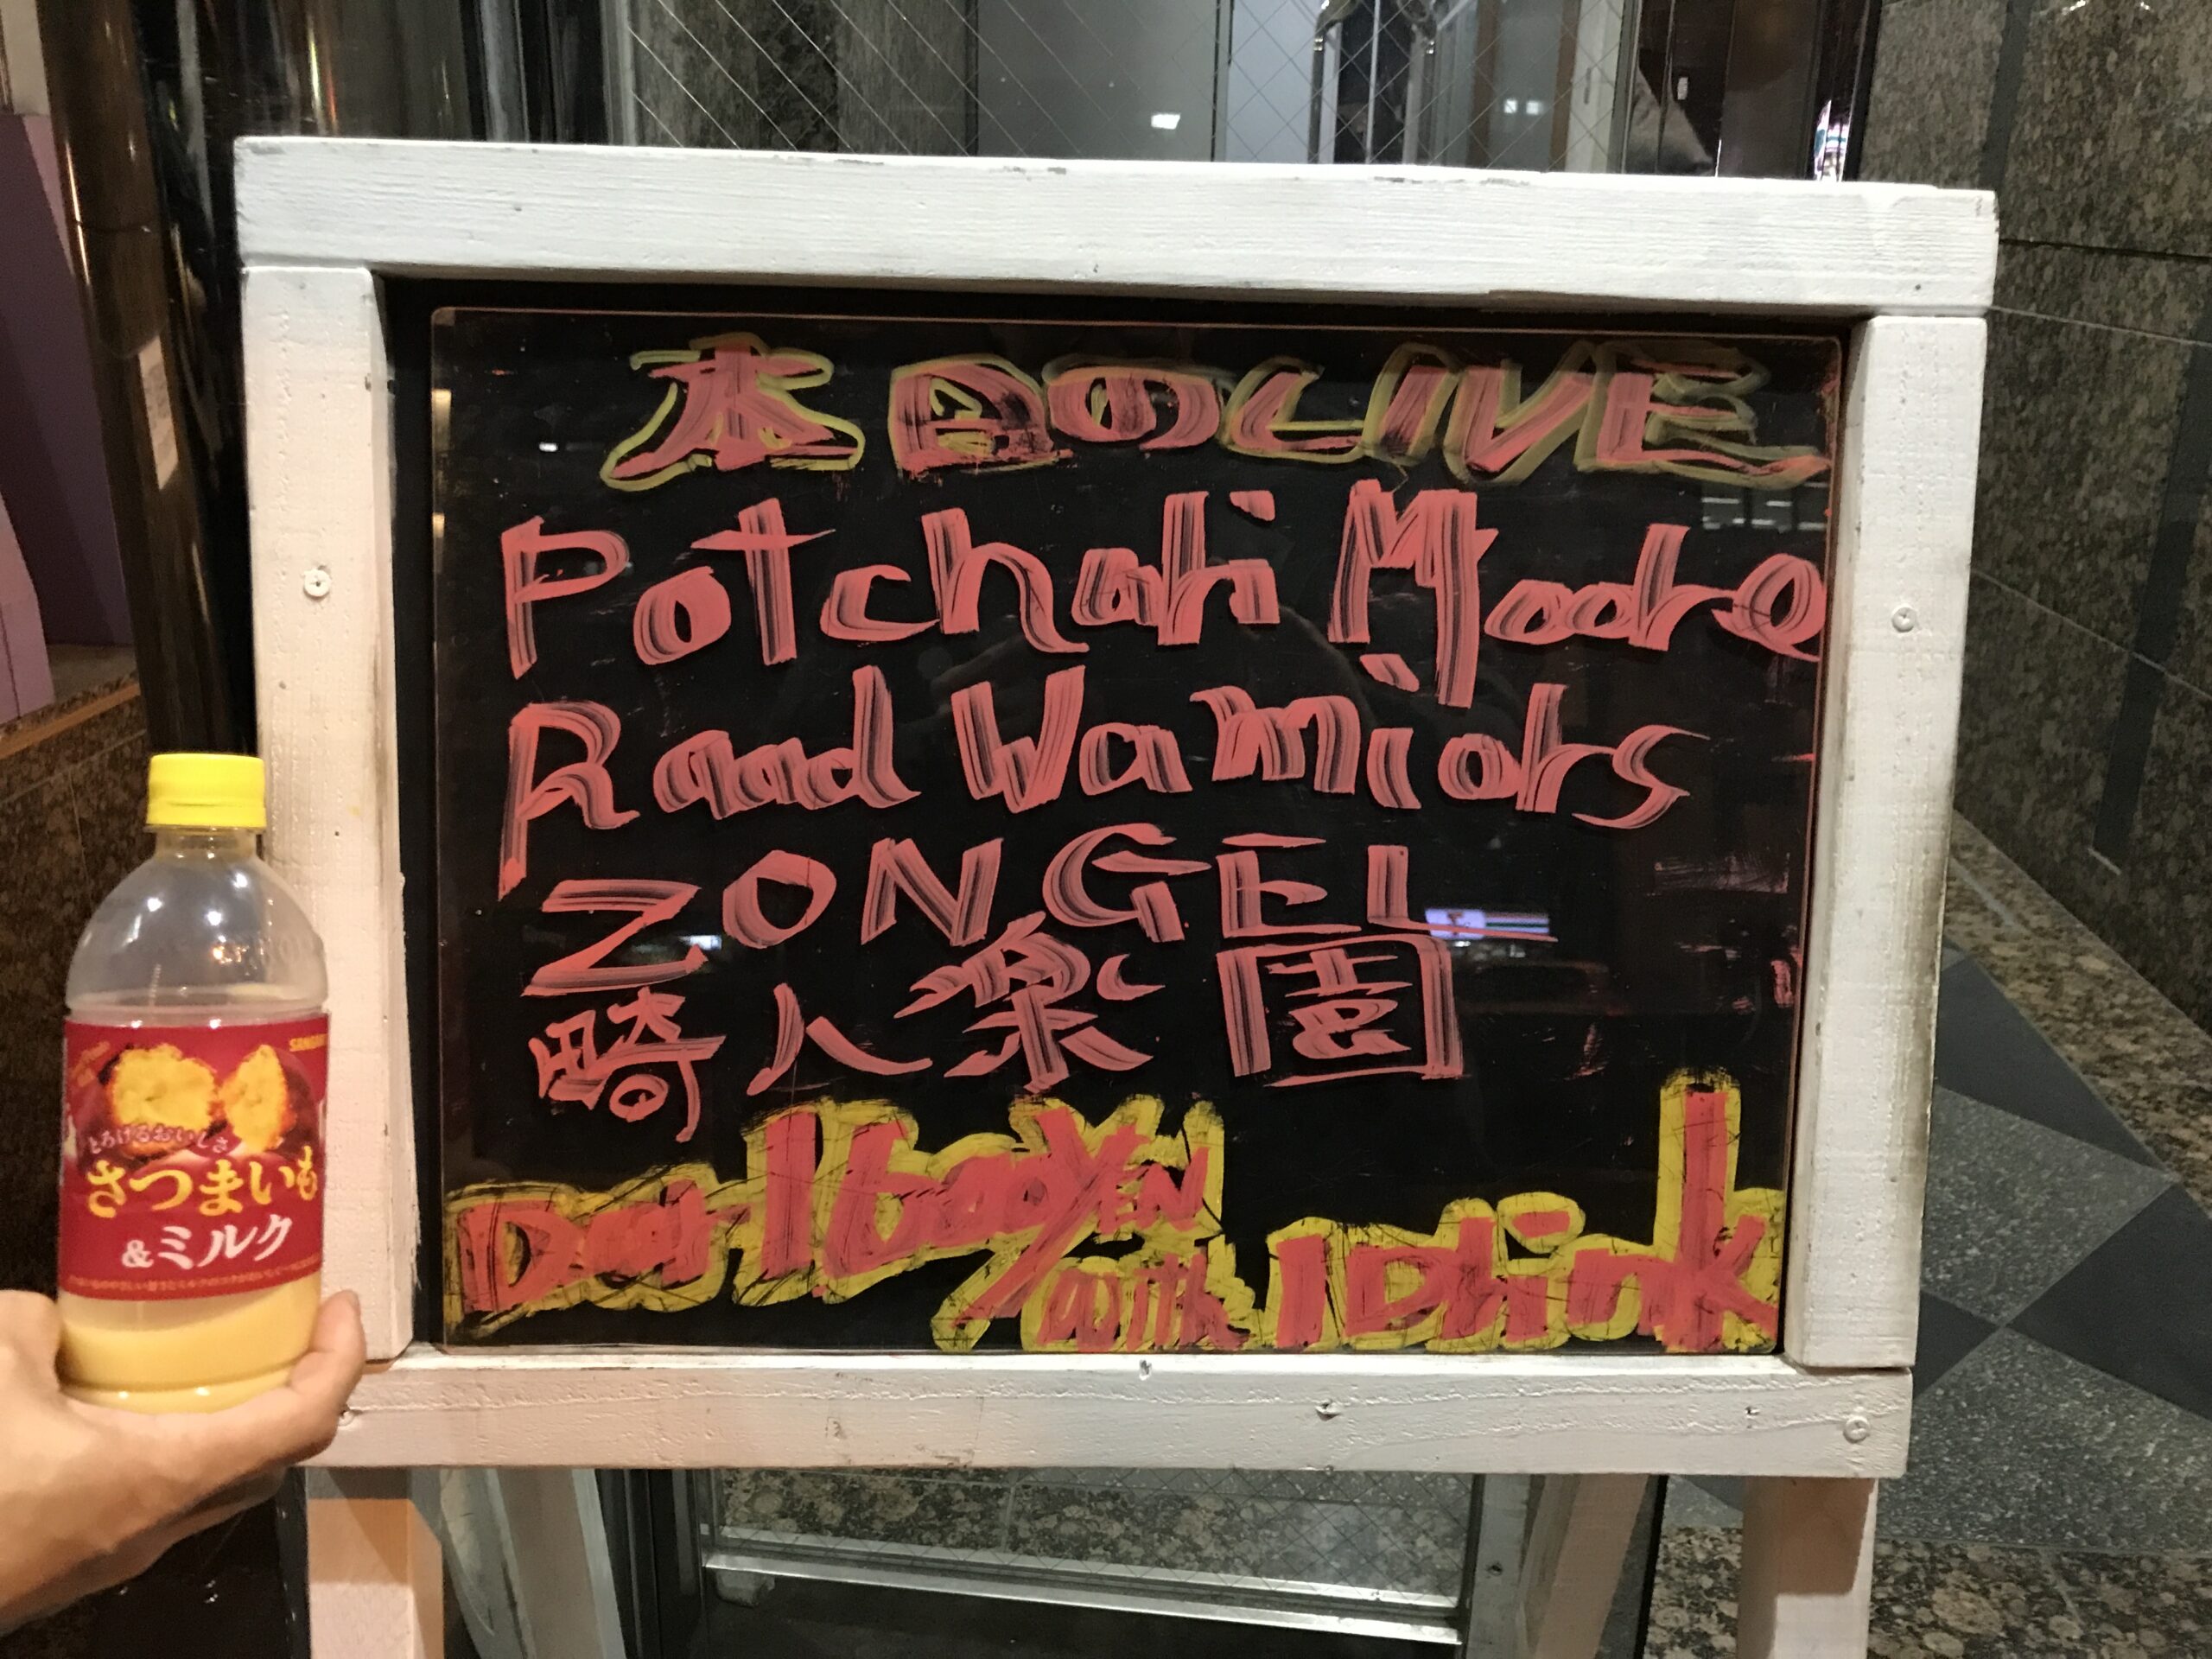 本日のLIVE
Potchari Moore
Raad Warriors
ZONGEL
畸人楽園
Door 1500 YEN
with 1 Drink
とろけるおいしさ
さつまいも
&ミルク